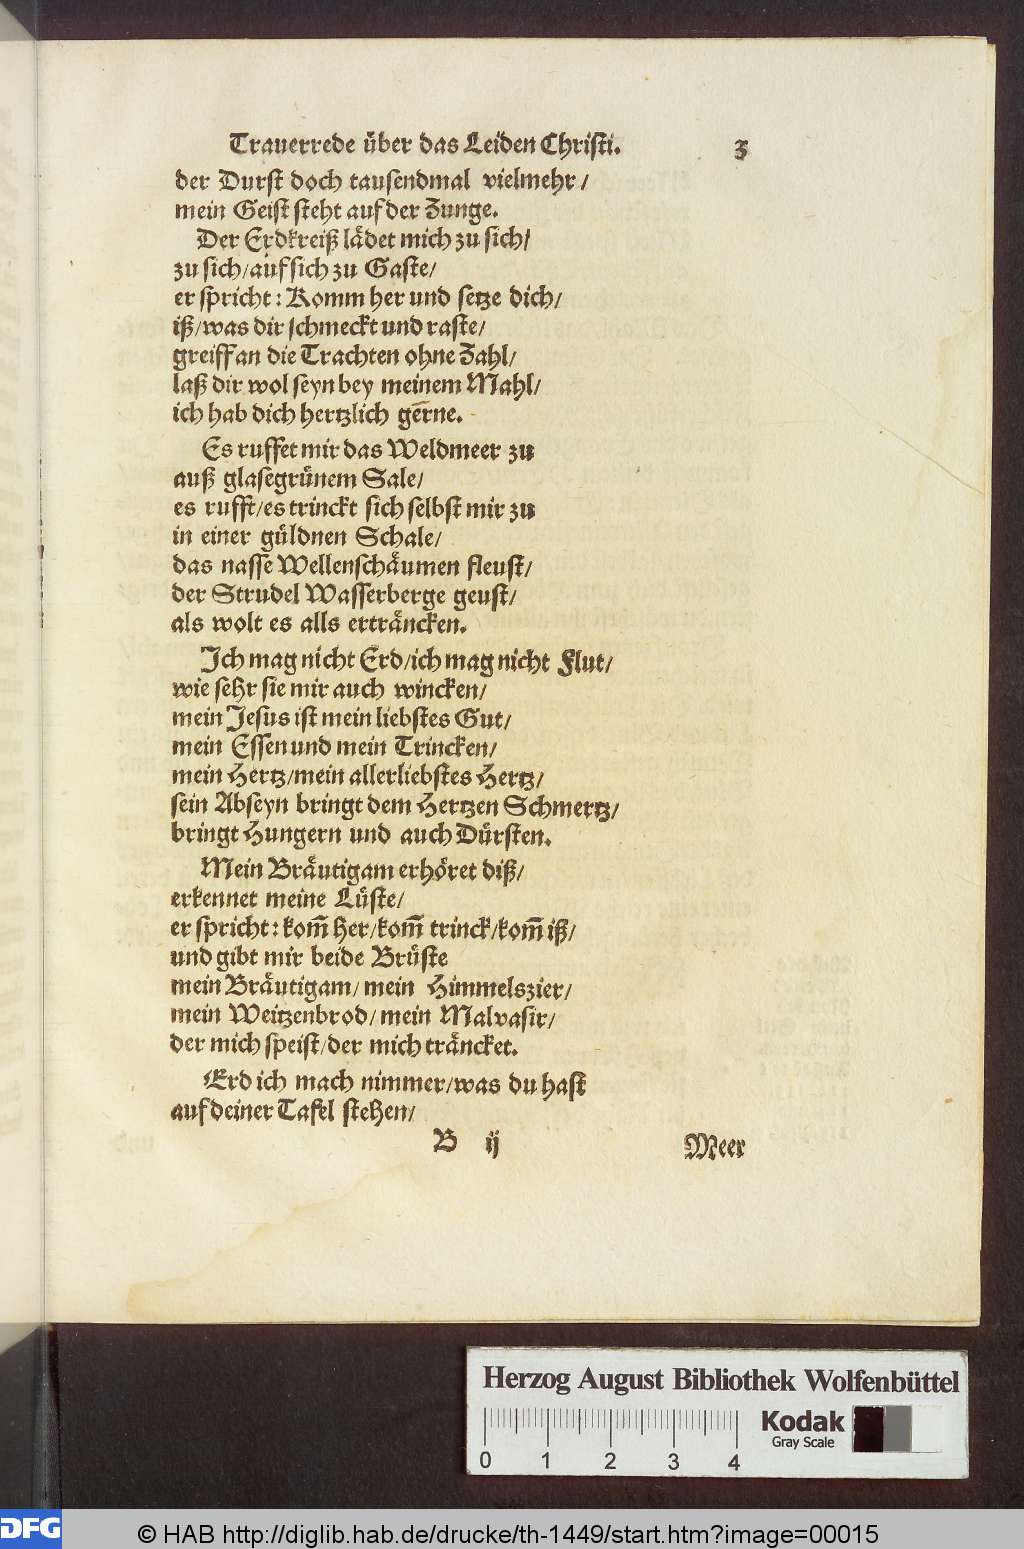 Trauerrede über das Leiden Christi. 3
der Durst doch tausendmal vielmehr /
mein Geist steht auf der Zunge.
Der Erdkreiß lädet mich zu sich /
zu sich / auf sich zu Gaste /
er spricht : Komm her und setze dich /
iß / was dir schmeckt und raste /
greiff an die Trachten ohne Zahl /
laß dir wol seyn bey meinem Mahl /
ich hab dich hertzlich gerne.
Es ruffet mir das Weldmeer zu
auß glasegrünem Sale /
es rufft / es trinckt sich selbst mir zu
in einer güldnen Schale /
das nasse Wellenschäumen fleust /
der Strudel Wasserberge geust /
als wolt es alls erträncken.
Ich mag nicht Erd / ich mag nicht Flut /
wie sehr sie mir auch wincken /
mein Jesus ist mein liebstes Gut /
mein Essen und mein Trincken /
mein Hertz / mein allerliebstes Hertz /
sein Abseyn bringt dem Hertzen Schmertz /
bringt Hungern und auch Dürsten.
Mein Bräutigam erhöret diß /
erkennet meine Lüste /
er spricht : kom̃ her / kom̃ trinck / kom̃ iß /
und gibt mir beide Brüste
mein Bräutigam / mein Himmelszier /
mein Weitzenbrod / mein Malvasir /
der mich speist / der mich träncket.
Erd ich mach nimmer / was du hast
auf deiner Tafel stehen /
B ij Meer
Herzog August Bibliothek Wolfenbüttel
Kodak
Gray Scale
0 1 2 3 4
DFG © HAB http://diglib.hab.de/drucke/th-1449/start.htm?image=00015